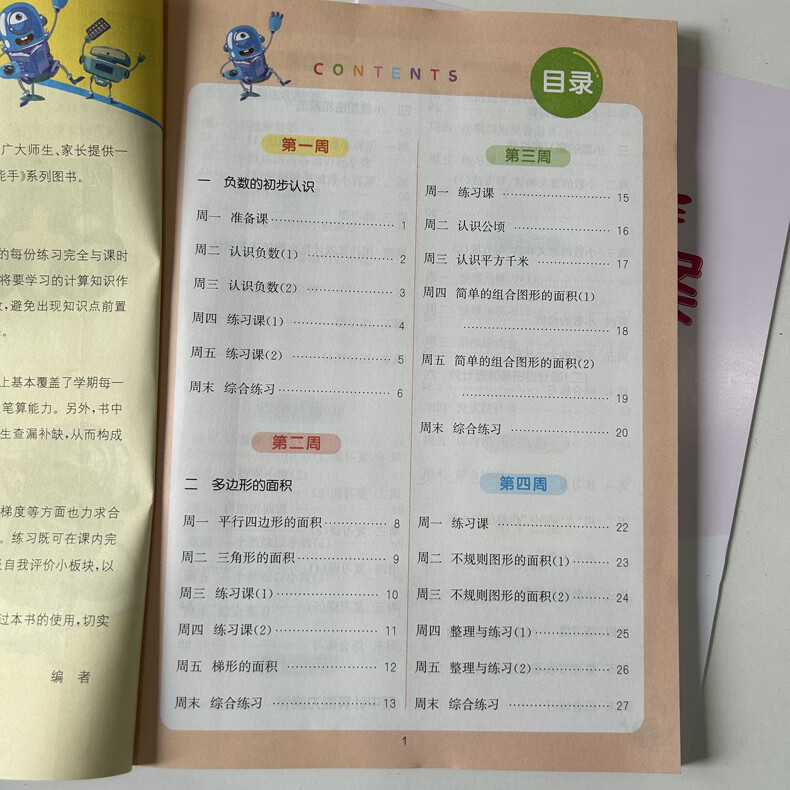 广大师生、家长提供一
能手》系列图书。
的每份练习完全与课时
将要学习的计算知识作
,避免出现知识点前置
上基本覆盖了学期每一
笔算能力。另外,书中
生查漏补缺,从而构成
梯度等方面也力求合
。练习既可在课内完
自我评价小板块,以
过本书的使用,切实
编 者
CONTENTS
目录
第一周
一 负数的初步认识
周一 准备课 1
周二 认识负数(1) 2
周三 认识负数(2) 3
周四 练习课(1) 4
周五 练习课(2) 5
周末 综合练习 6
第二周
二 多边形的面积
周一 平行四边形的面积 8
周二 三角形的面积 9
周三 练习课(1) 10
周四 练习课(2) 11
周五 梯形的面积 12
周末 综合练习 13
第三周
周一 练习课 15
周二 认识公顷 16
周三 认识平方千米 17
周四 简单的组合图形的面积(1)
18
周五 简单的组合图形的面积(2)
19
周末 综合练习 20
第四周
周一 练习课 22
周二 不规则图形的面积(1) 23
周三 不规则图形的面积(2) 24
周四 整理与练习(1) 25
周五 整理与练习(2) 26
周末 综合练习 27
1